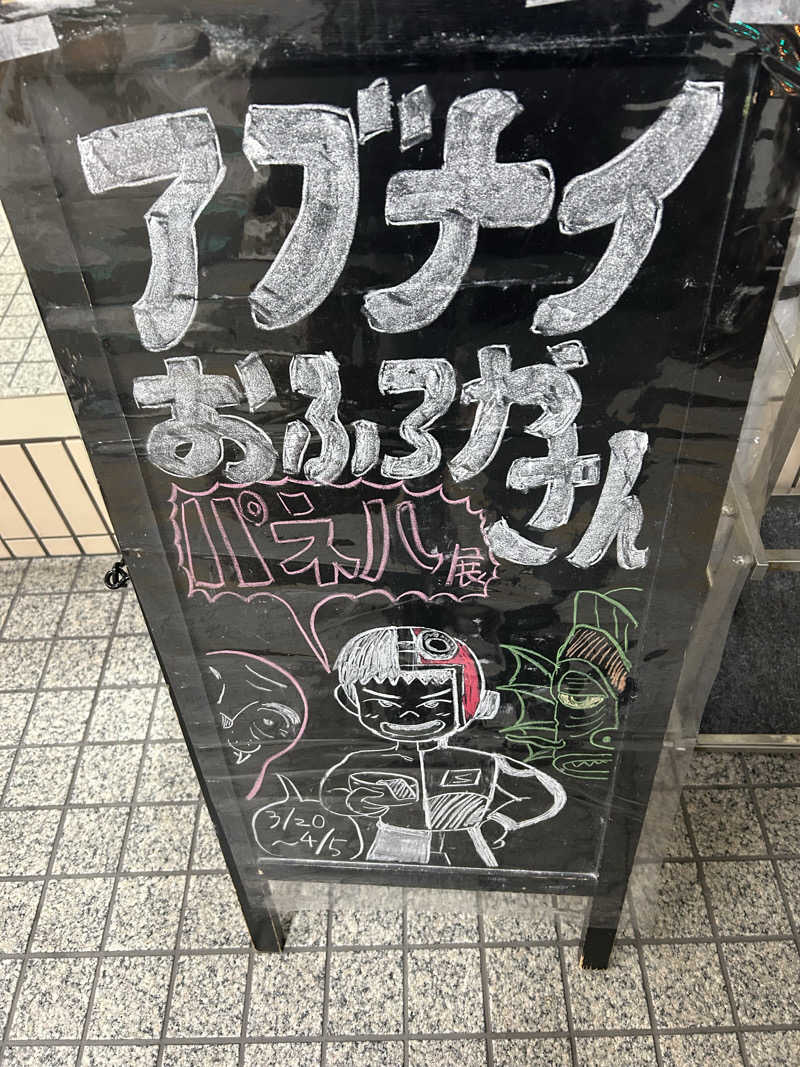 アブナイ
おふろやさん
パネル展
3/20
～4/5
S